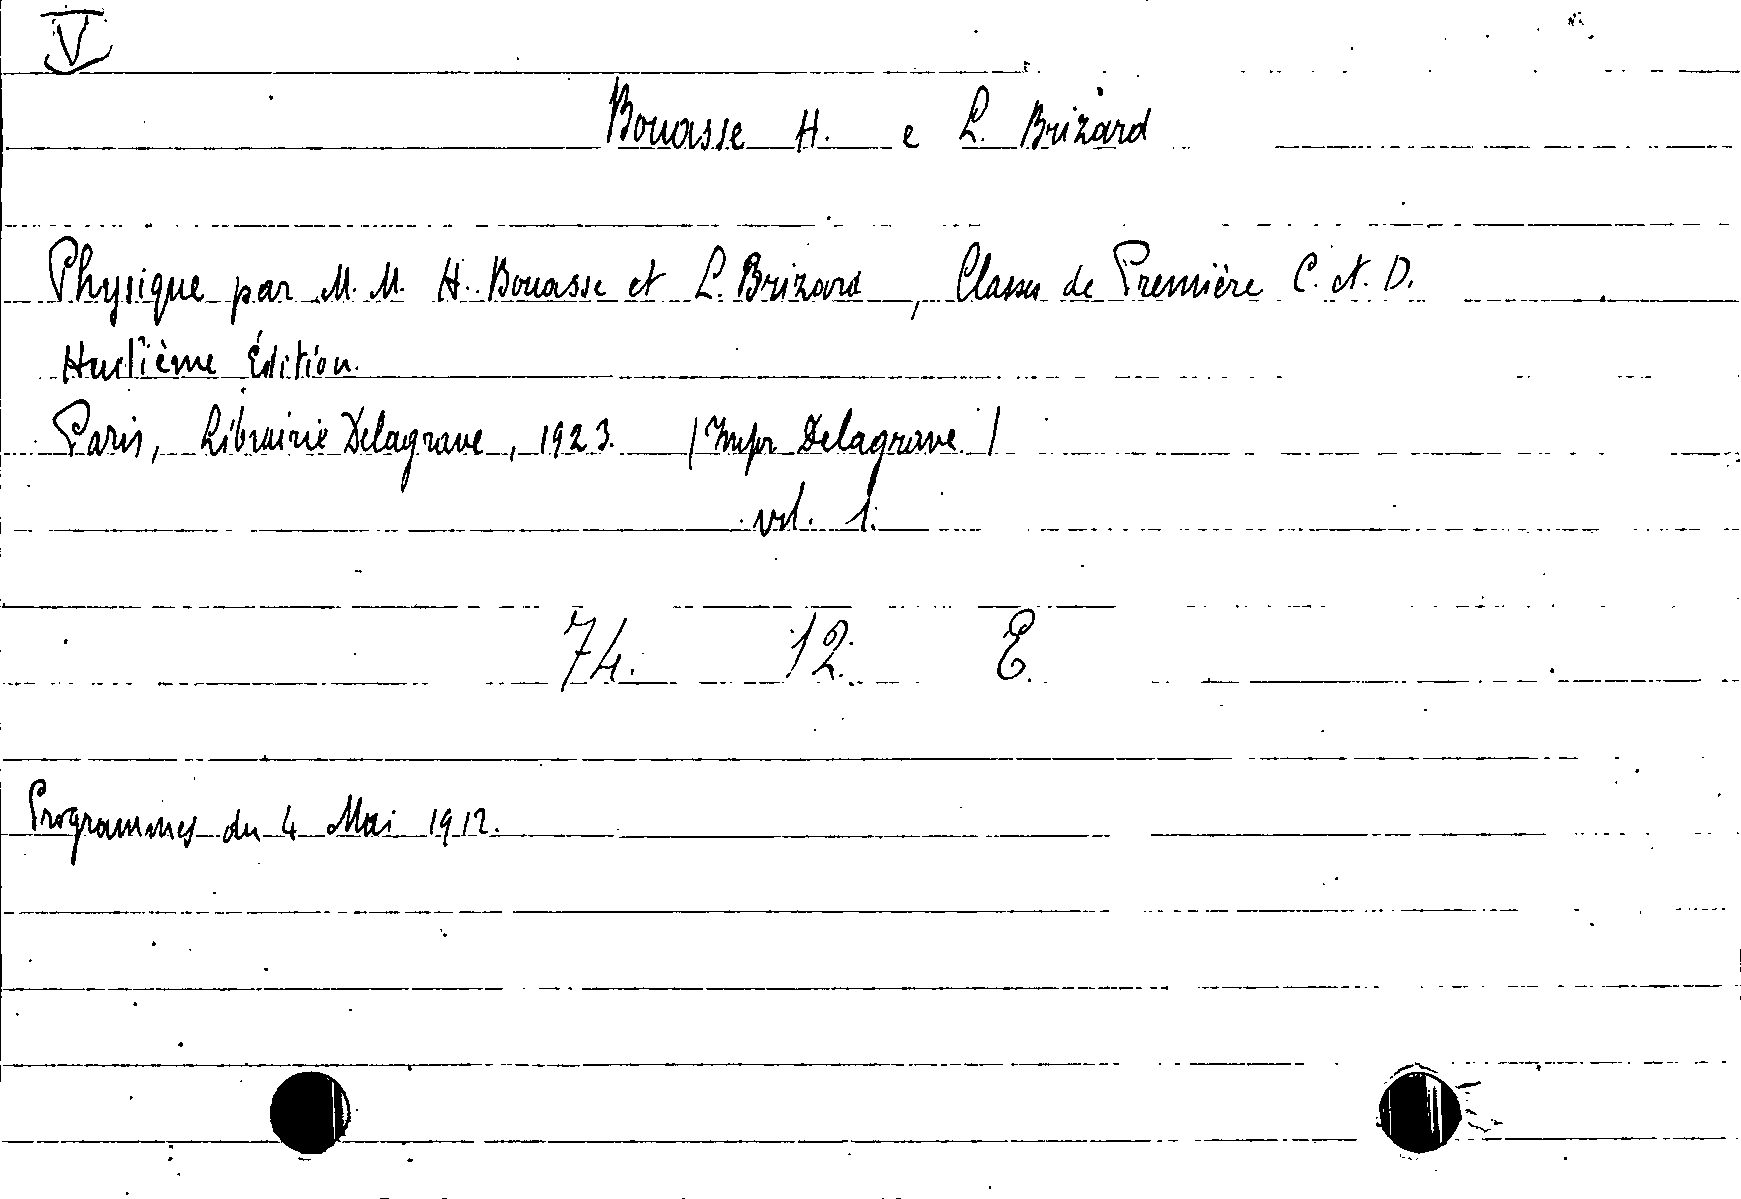 V
Bouasse H. e L. Brizard
Physique par M. M. H. Bouasse et L. Brizard, Classes de Première C. et. D.
Huitième Édition.
Paris, Librairie Delagrave, 1923. (Impr Delagrave)
vol. 1.
74. 12. E.
Programmes du 4 Mai 1912.